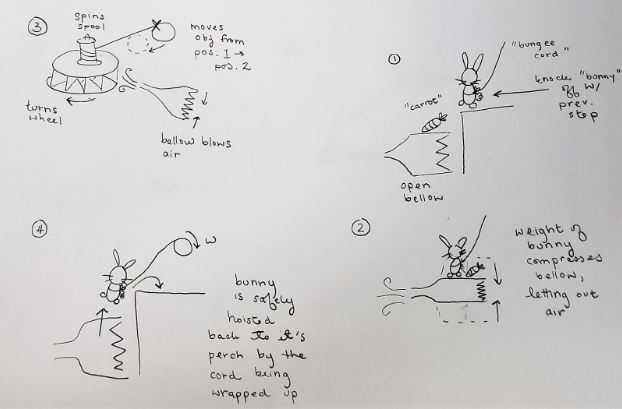 ③
spins
spool
moves
obj from
pos. 1 →
pos. 2
turns
wheel
bellow blows
air
①
"bungee
cord"
knock "bunny"
off w/
prev.
step
"carrot"
open
bellow
④
w
bunny
is safely
hoisted
back to it's
perch by the
cord being
wrapped up
②
weight of
bunny
compresses
bellow,
letting out
air